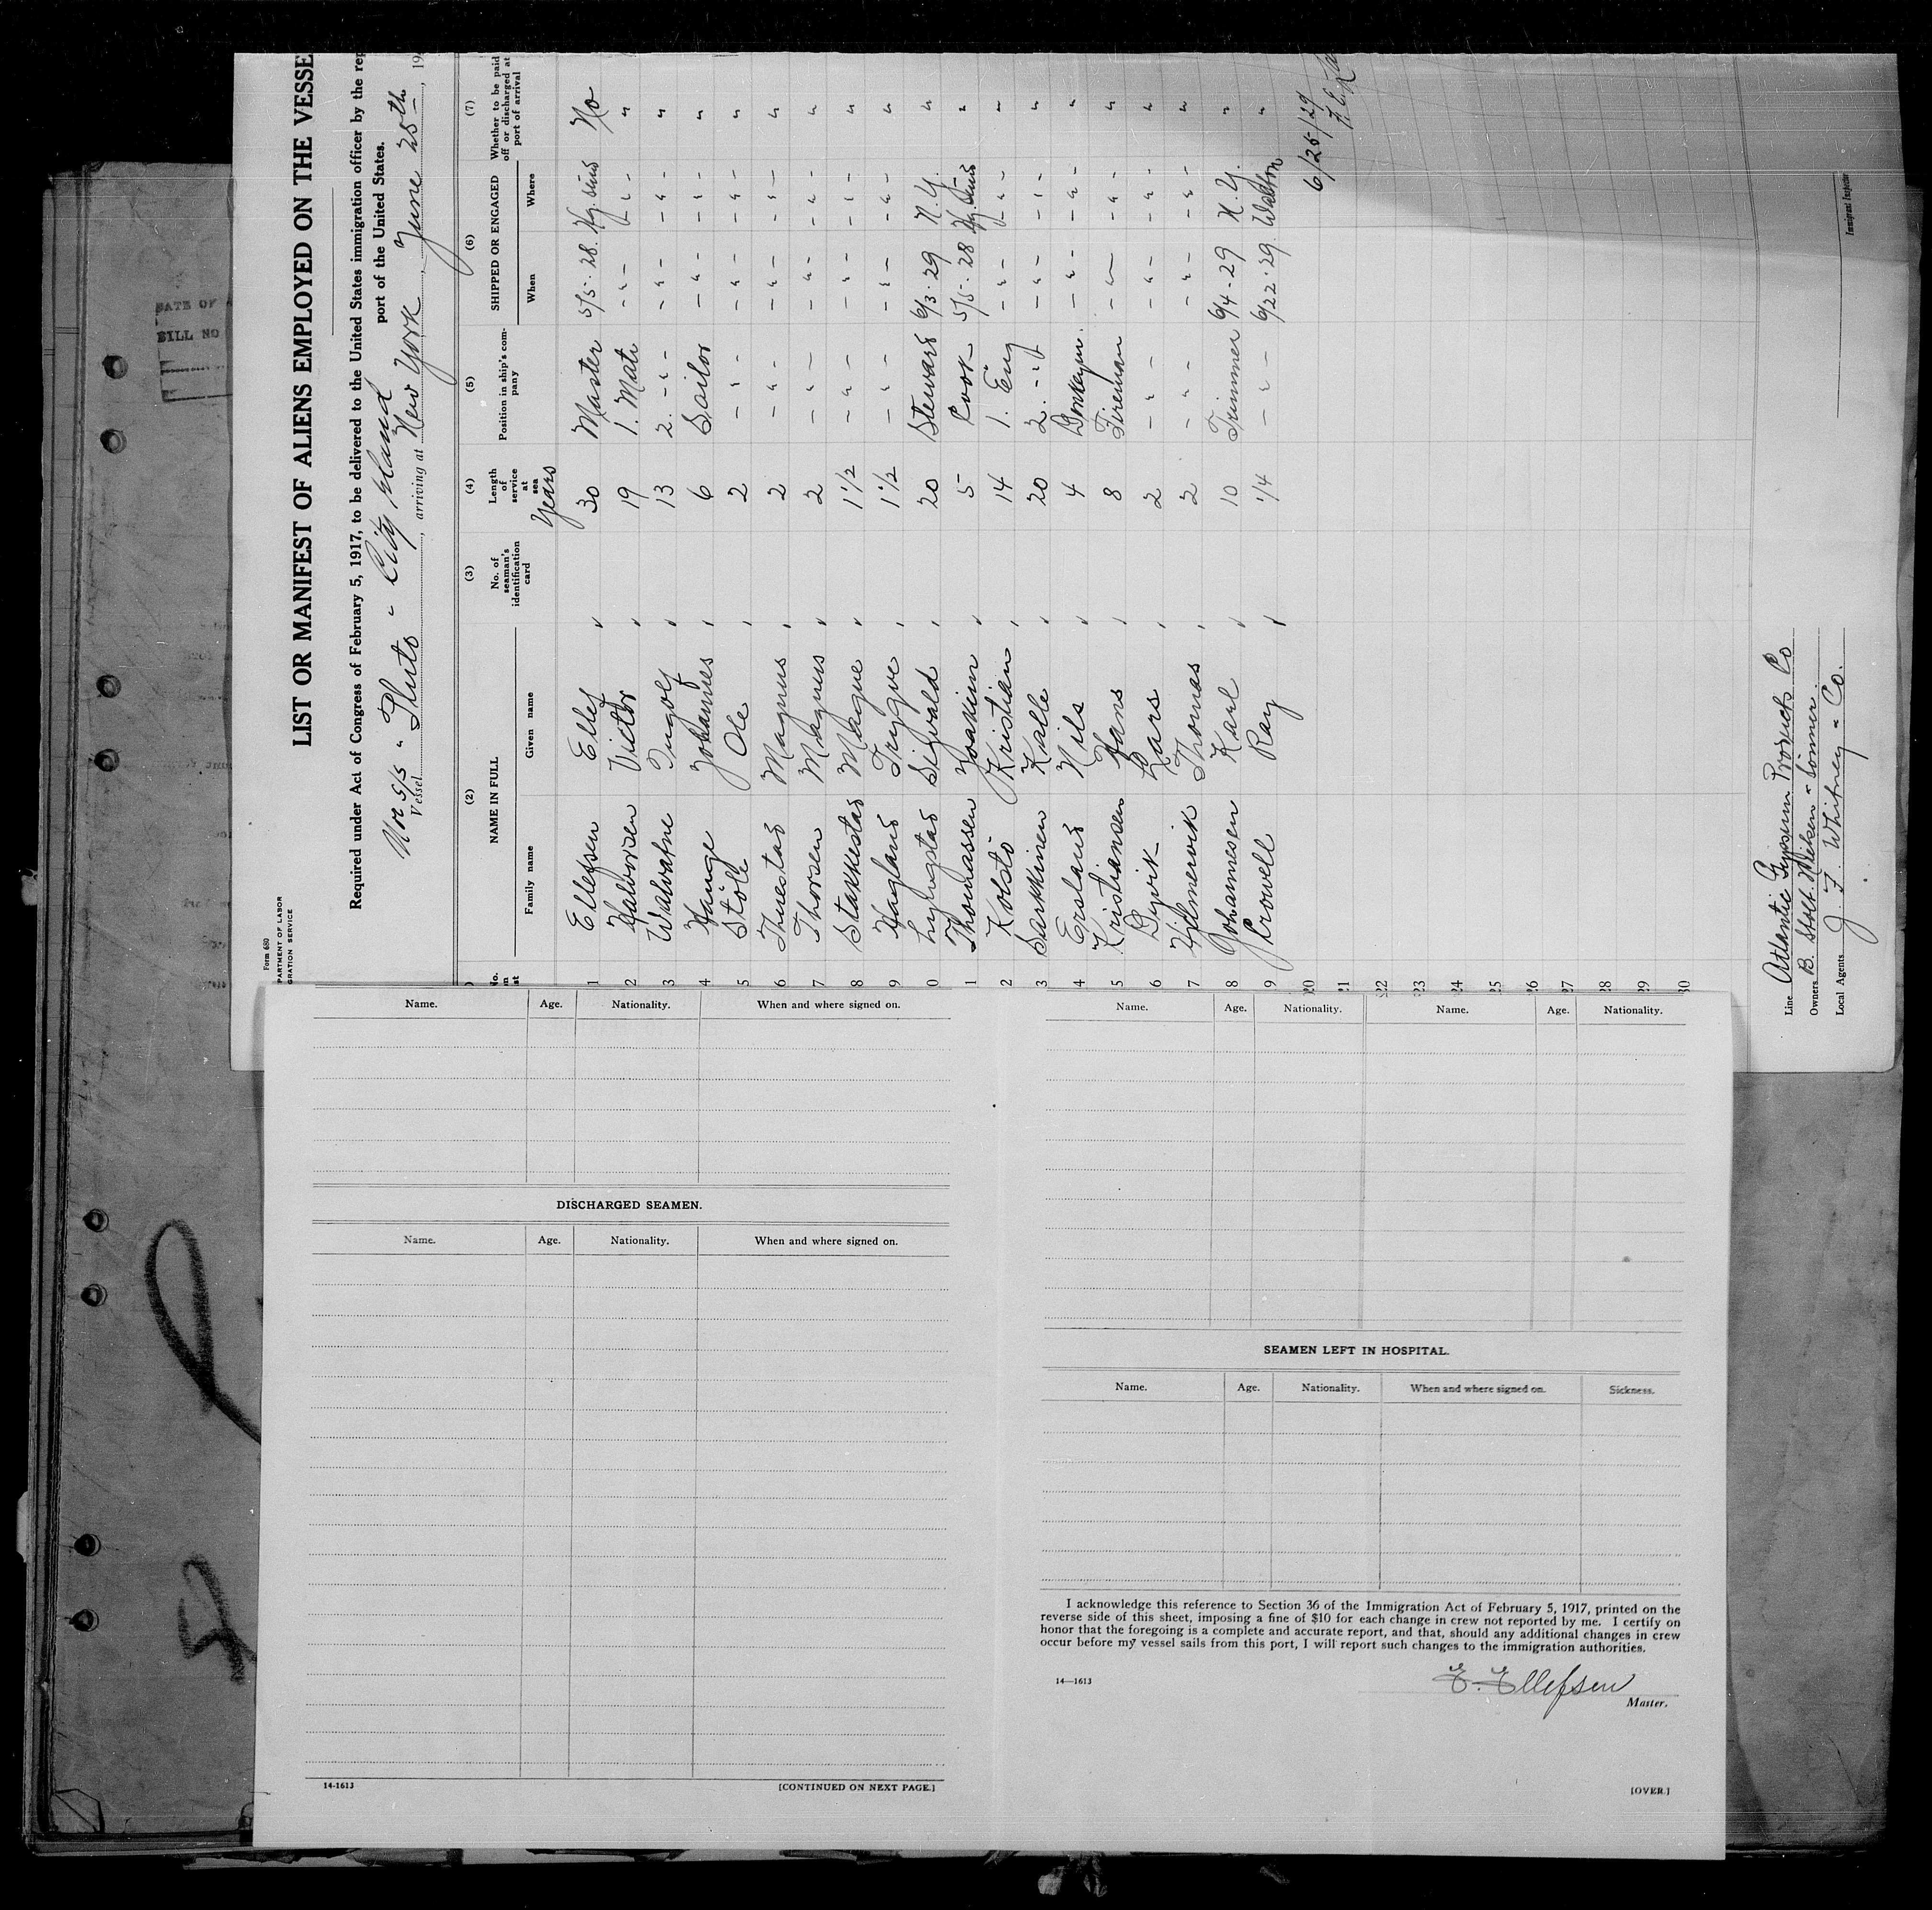 Form 680
PARTMENT OF LABOR
GRATION SERVICE
LIST OR MANIFEST OF ALIENS EMPLOYED ON THE VESSE
Required under Act of Congress of February 5, 1917, to be delivered to the United States immigration officer by the rep
port of the United States.
Nor S/S " Pluto " City Island
Vessel, arriving at New York, June 25th, 19
(2) (3) (4) (5) (6) (7)
No. NAME IN FULL No. of seaman's identification card Length of service at sea Position in ship's company SHIPPED OR ENGAGED Whether to be paid off or discharged at port of arrival
Family name Given name Years When Where
1 Ellefsen Ellef 30 Master 5/5-28. No
2 Halvorsen Victor 19 1. Mate - " - - " - "
3 Walvatne Ingolf 13 2. - " - - " - - " - "
4 Hauge Johannes 6 Sailor - " - - " - "
5 Stöle Ole 2 - " - - " - - " - "
6 Tuestad Magnus 2 - " - - " - - " - "
7 Thorsen Magnus 2 - " - - " - - " - "
8 Stakkestad Magne 1 1/2 - " - - " - - " - "
9 Hagland Trygve 1 1/2 - " - - " - - " - "
0 Lyngstad Sigvald 20 Steward 6/3-29 N.Y. "
1 Thomassen Joakim 5 Cook 5/5-28 "
2 Kolstö Kristian 14 1. Eng - " - - " - "
3 Sarkkinen Kalle 20 2. - " - - " - - " - "
4 Ersland Nils 4 Donkeym. - " - - " - "
5 Kristiansen Hans 8 Fireman - " - - " - "
6 Bjrvik Lars 2 - " - - " - - " - "
7 Hjelmervik Thomas 2 - " - - " - - " - "
8 Johannesen Karl 10 Trimmer 6/4-29 N.Y. "
9 Crowell Ray 1/4 - " - 6/22-29. Walton "
20 6/25/29
21
22
23
24
25
26
27
28
29
30
Line Atlantic Gypsum Products Co
Owners B. Stolt Nielsen & Sönner.
Local Agents J. F. Whitney & Co.
Immigrant Inspector
DATE OF
BILL NO
Name. Age. Nationality. When and where signed on.
DISCHARGED SEAMEN.
Name. Age. Nationality. When and where signed on.
14-1613 [CONTINUED ON NEXT PAGE.]
Name. Age. Nationality. Name. Age. Nationality.
SEAMEN LEFT IN HOSPITAL.
Name. Age. Nationality. When and where signed on. Sickness.
I acknowledge this reference to Section 36 of the Immigration Act of February 5, 1917, printed on the
reverse side of this sheet, imposing a fine of $10 for each change in crew not reported by me. I certify on
honor that the foregoing is a complete and accurate report, and that, should any additional changes in crew
occur before my vessel sails from this port, I will report such changes to the immigration authorities.
14—1613
E. Ellefsen
Master.
[OVER.]